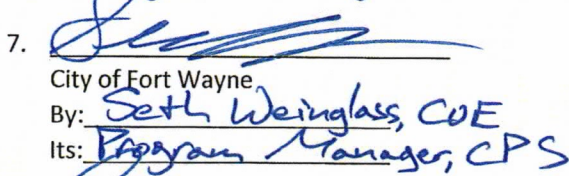 7.
City of Fort Wayne
By: Seth Weinglass, CUE
Its: Program Manager, CPS